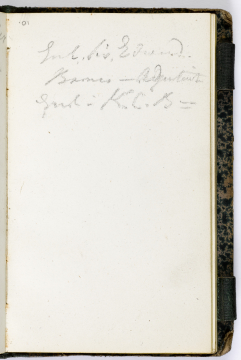 101
Genl. Sir. Edward.
Barnes — Adjutant
Genl - K. C. B —